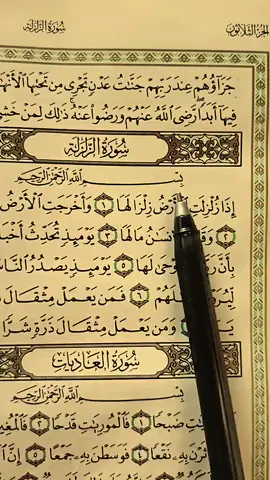 الجزء الثلاثون سورة الزلزلة
جَزَآؤُهُمْ عِندَ رَبِّهِمْ جَنَّٰتُ عَدْنٍ تَجْرِى مِن تَحْتِهَا ٱلْأَنْهَٰ
فِيهَآ أَبَدًا رَّضِىَ ٱللَّهُ عَنْهُمْ وَرَضُوا۟ عَنْهُ ذَٰلِكَ لِمَنْ خَشِىَ
سُورَةُ الزَّلْزَلَةِ
بِسْمِ ٱللَّهِ ٱلرَّحْمَٰنِ ٱلرَّحِيمِ
إِذَا زُلْزِلَتِ زِلْزَالَهَا ١ وَأَخْرَجَتِ ٱلْأَرْضُ
٢ مَا لَهَا ٣ يَوْمَئِذٍ تُحَدِّثُ
بِأَنَّ لَهَا ٥ يَوْمَئِذٍ يَصْدُرُ ٱلنَّا
٦ فَمَن يَعْمَلْ مِثْقَالَ
وَمَن يَعْمَلْ مِثْقَالَ ذَرَّةٍ شَرًّا
سُورَةُ العَادِيَاتِ
بِسْمِ ٱللَّهِ ٱلرَّحْمَٰنِ ٱلرَّحِيمِ
ضَبْحًا ١ فَٱلْمُورِيَٰتِ قَدْحًا ٢
بِهِۦ نَقْعًا ٤ فَوَسَطْنَ بِهِۦ جَمْعًا ٥